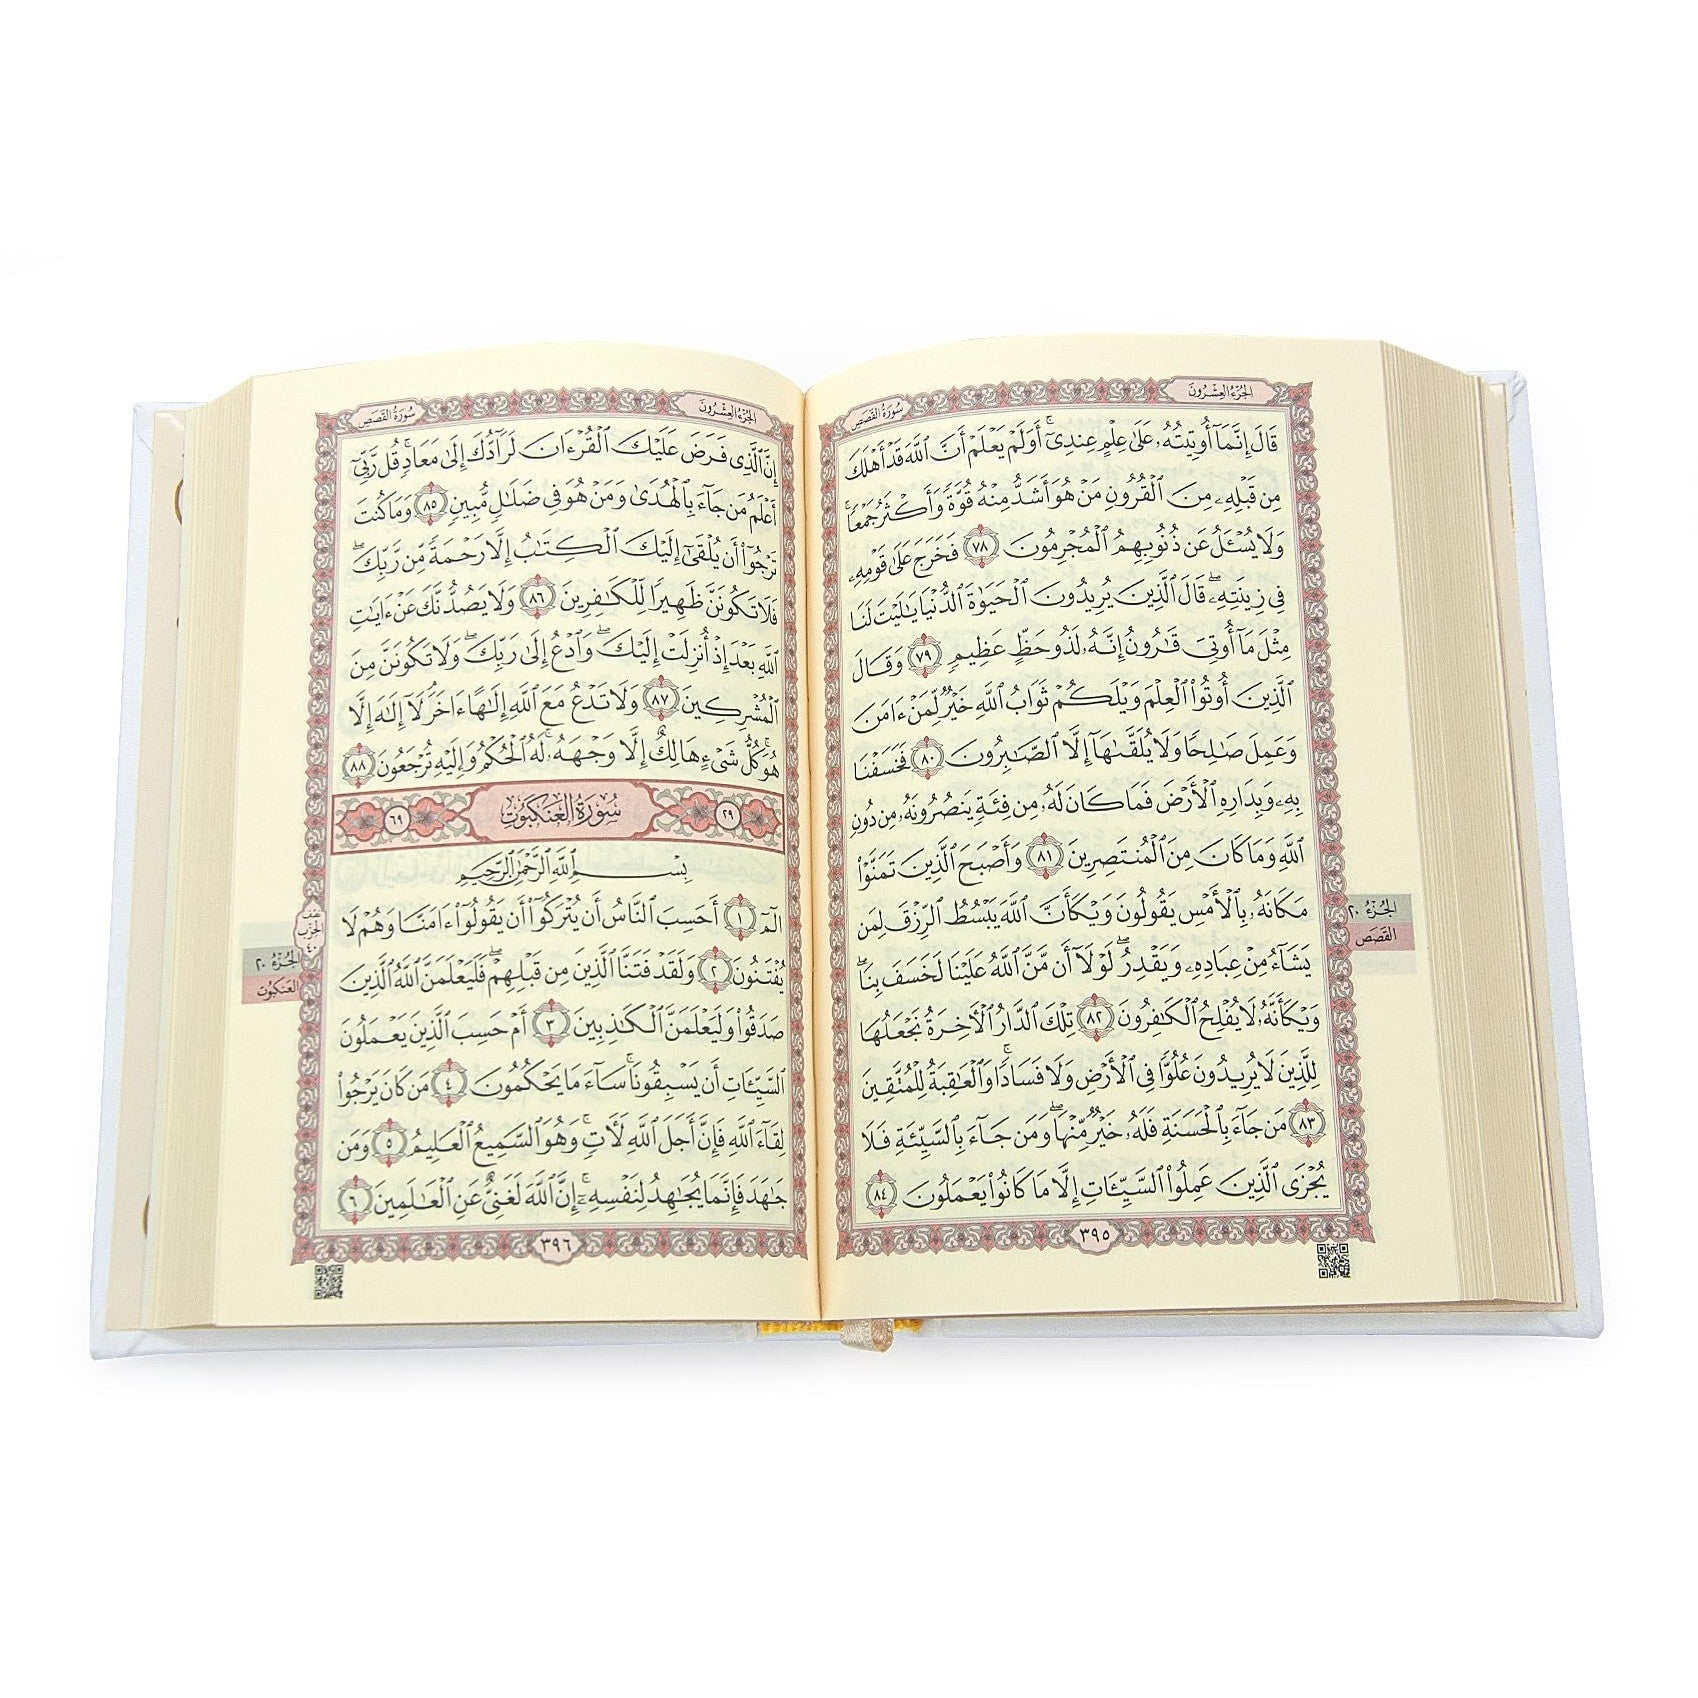 الجُزْءُ العِشْرُونَ
سُورَةُ القَصَصِ
قَالَ إِنَّمَآ أُوتِيتُهُۥ عَلَىٰ عِلْمٍ عِندِىٓۚ أَوَلَمْ يَعْلَمْ أَنَّ ٱللَّهَ قَدْ أَهْلَكَ
مِن قَبْلِهِۦ مِنَ ٱلْقُرُونِ مَنْ هُوَ أَشَدُّ مِنْهُ قُوَّةً وَأَكْثَرُ جَمْعًاۚ
وَلَا يُسْـَٔلُ عَن ذُنُوبِهِمُ ٱلْمُجْرِمُونَ ٧٨ فَخَرَجَ عَلَىٰ قَوْمِهِۦ
فِى زِينَتِهِۦۖ قَالَ ٱلَّذِينَ يُرِيدُونَ ٱلْحَيَوٰةَ ٱلدُّنْيَا يَٰلَيْتَ لَنَا
مِثْلَ مَآ أُوتِىَ قَٰرُونُ إِنَّهُۥ لَذُو حَظٍّ عَظِيمٍ ٧٩ وَقَالَ
ٱلَّذِينَ أُوتُوا۟ ٱلْعِلْمَ وَيْلَكُمْ ثَوَابُ ٱللَّهِ خَيْرٌ لِّمَنْ ءَامَنَ
وَعَمِلَ صَٰلِحًا وَلَا يُلَقَّىٰهَآ إِلَّا ٱلصَّٰبِرُونَ ٨٠ فَخَسَفْنَا
بِهِۦ وَبِدَارِهِ ٱلْأَرْضَ فَمَا كَانَ لَهُۥ مِن فِئَةٍ يَنصُرُونَهُۥ مِن دُونِ
ٱللَّهِ وَمَا كَانَ مِنَ ٱلْمُنتَصِرِينَ ٨١ وَأَصْبَحَ ٱلَّذِينَ تَمَنَّوْا۟
مَكَانَهُۥ بِٱلْأَمْسِ يَقُولُونَ وَيْكَأَنَّ ٱللَّهَ يَبْسُطُ ٱلرِّزْقَ لِمَن
يَشَآءُ مِنْ عِبَادِهِۦ وَيَقْدِرُۖ لَوْلَآ أَن مَّنَّ ٱللَّهُ عَلَيْنَا لَخَسَفَ بِنَاۖ
وَيْكَأَنَّهُۥ لَا يُفْلِحُ ٱلْكَٰفِرُونَ ٨٢ تِلْكَ ٱلدَّارُ ٱلْأَخِرَةُ نَجْعَلُهَا
لِلَّذِينَ لَا يُرِيدُونَ عُلُوًّا فِى ٱلْأَرْضِ وَلَا فَسَادًاۚ وَٱلْعَٰقِبَةُ لِلْمُتَّقِينَ
٨٣ مَن جَآءَ بِٱلْحَسَنَةِ فَلَهُۥ خَيْرٌ مِّنْهَاۖ وَمَن جَآءَ بِٱلسَّيِّئَةِ فَلَا
يُجْزَى ٱلَّذِينَ عَمِلُوا۟ ٱلسَّيِّـَٔاتِ إِلَّا مَا كَانُوا۟ يَعْمَلُونَ ٨٤
الجُزْءُ ٢٠
القَصَص
٣٩٥
الجُزْءُ العِشْرُونَ
سُورَةُ القَصَصِ
إِنَّ ٱلَّذِى فَرَضَ عَلَيْكَ ٱلْقُرْءَانَ لَرَآدُّكَ إِلَىٰ مَعَادٍۚ قُل رَّبِّىٓ
أَعْلَمُ مَن جَآءَ بِٱلْهُدَىٰ وَمَنْ هُوَ فِى ضَلَٰلٍ مُّبِينٍ ٨٥ وَمَا كُنتَ
تَرْجُوٓا۟ أَن يُلْقَىٰٓ إِلَيْكَ ٱلْكِتَٰبُ إِلَّا رَحْمَةً مِّن رَّبِّكَۖ
فَلَا تَكُونَنَّ ظَهِيرًا لِّلْكَٰفِرِينَ ٨٦ وَلَا يَصُدُّنَّكَ عَنْ ءَايَٰتِ
ٱللَّهِ بَعْدَ إِذْ أُنزِلَتْ إِلَيْكَۖ وَٱدْعُ إِلَىٰ رَبِّكَۖ وَلَا تَكُونَنَّ مِنَ
ٱلْمُشْرِكِينَ ٨٧ وَلَا تَدْعُ مَعَ ٱللَّهِ إِلَٰهًا ءَاخَرَۘ لَآ إِلَٰهَ إِلَّا
هُوَۚ كُلُّ شَىْءٍ هَالِكٌ إِلَّا وَجْهَهُۥۚ لَهُ ٱلْحُكْمُ وَإِلَيْهِ تُرْجَعُونَ ٨٨
٢٩ سُورَةُ العَنكَبُوتِ ٦٩
بِسْمِ ٱللَّهِ ٱلرَّحْمَٰنِ ٱلرَّحِيمِ
الٓمٓ ١ أَحَسِبَ ٱلنَّاسُ أَن يُتْرَكُوٓا۟ أَن يَقُولُوٓا۟ ءَامَنَّا وَهُمْ لَا
يُفْتَنُونَ ٢ وَلَقَدْ فَتَنَّا ٱلَّذِينَ مِن قَبْلِهِمْۖ فَلَيَعْلَمَنَّ ٱللَّهُ ٱلَّذِينَ
صَدَقُوا۟ وَلَيَعْلَمَنَّ ٱلْكَٰذِبِينَ ٣ أَمْ حَسِبَ ٱلَّذِينَ يَعْمَلُونَ
ٱلسَّيِّـَٔاتِ أَن يَسْبِقُونَاۚ سَآءَ مَا يَحْكُمُونَ ٤ مَن كَانَ يَرْجُوا۟
لِقَآءَ ٱللَّهِ فَإِنَّ أَجَلَ ٱللَّهِ لَأٓتٍۚ وَهُوَ ٱلسَّمِيعُ ٱلْعَلِيمُ ٥ وَمَن
جَٰهَدَ فَإِنَّمَا يُجَٰهِدُ لِنَفْسِهِۦٓۚ إِنَّ ٱللَّهَ لَغَنِىٌّ عَنِ ٱلْعَٰلَمِينَ ٦
نصف
الحزب
٤٠
الجُزْءُ ٢٠
العَنكَبُوت
٣٩٦